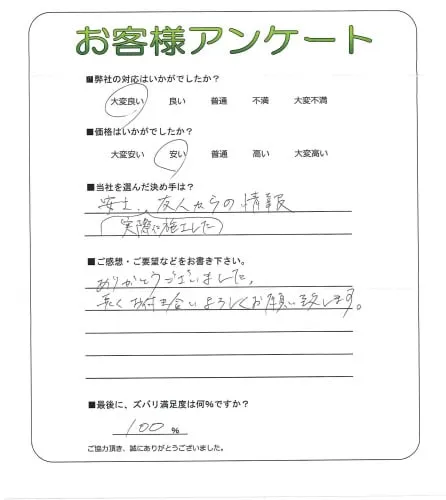 お客様アンケート
■弊社の対応はいかがでしたか?
大変良い 良い 普通 不満 大変不満
■価格はいかがでしたか?
大変安い 安い 普通 高い 大変高い
■当社を選んだ決め手は?
友人からの情報
(実際に施工した)
■ご感想・ご要望などをお書き下さい。
ありがとうございました。
長くお付き合いよろしくお願い致します。
■最後に、ズバリ満足度は何%ですか?
100 %
ご協力頂き、誠にありがとうございました。